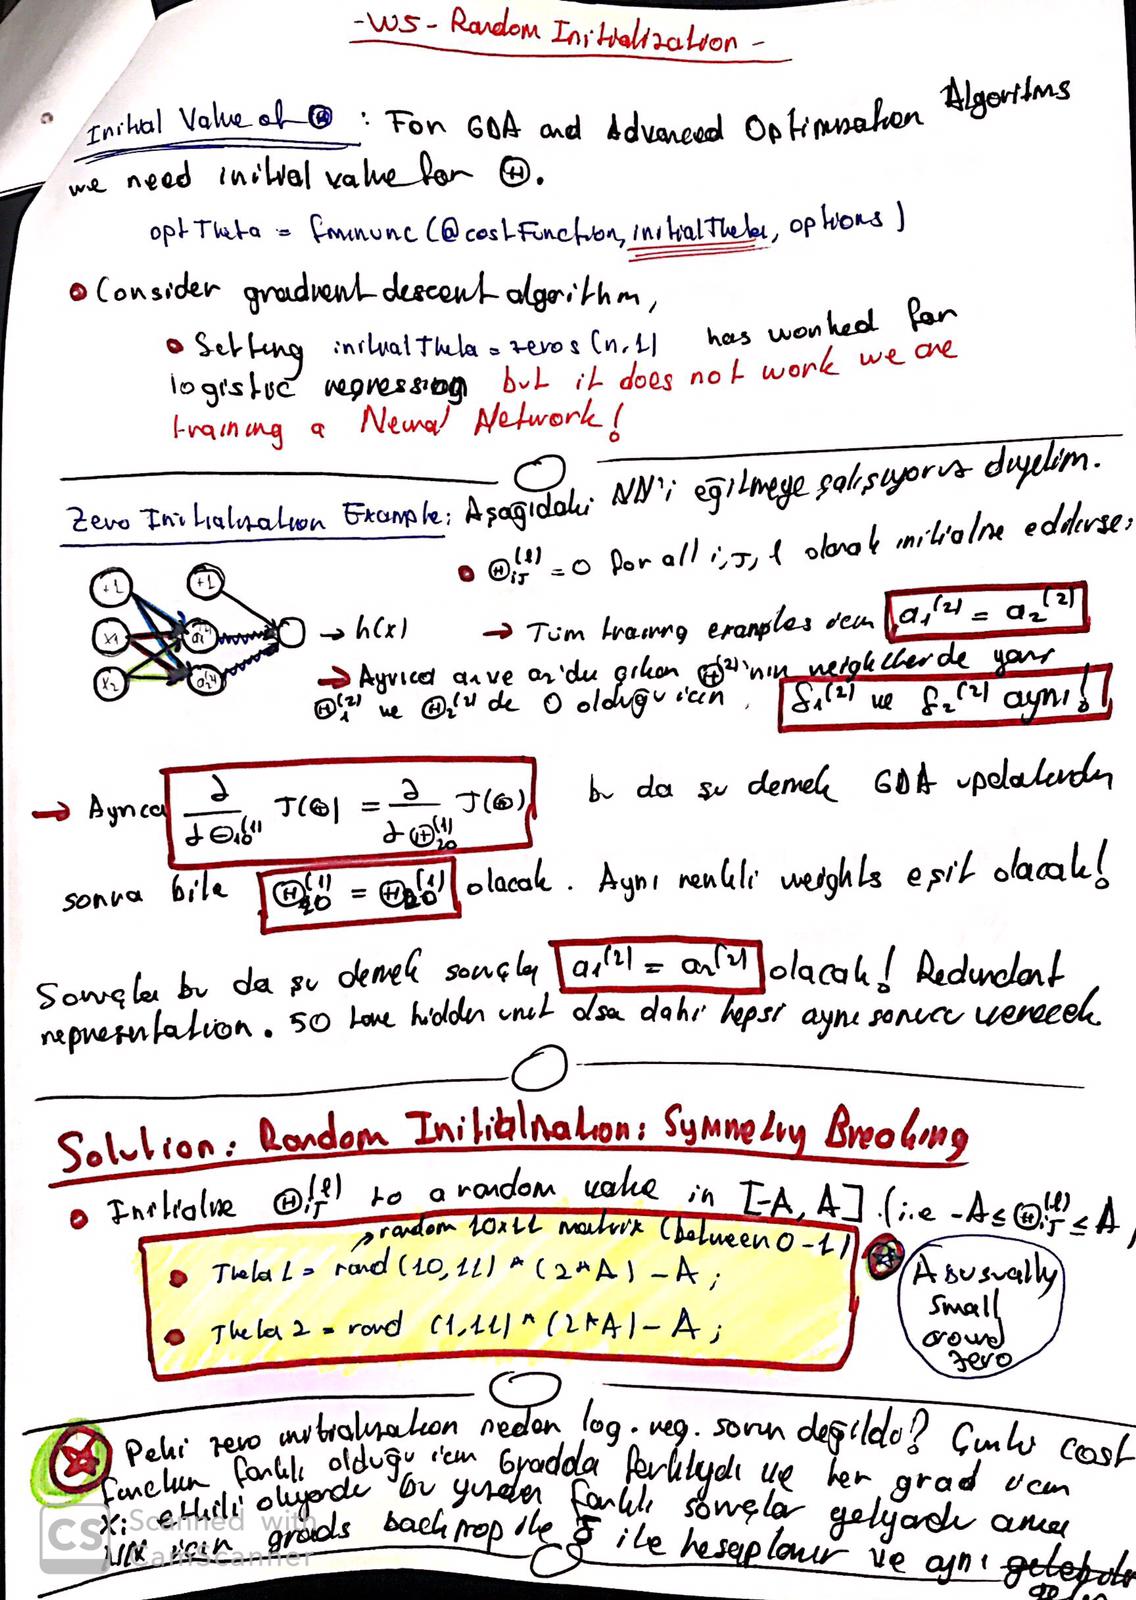 -W5- Random Initialization -
Initial Value of Θ : For GDA and Advanced Optimization Algoritms
we need initial value for Θ.
optTheta = fminunc (@costFunction, initialTheta, options)
• Consider gradient descent algorithm,
• Setting initialTheta = zeros (n,1) has worked for
logistic regression but it does not work we are
training a Neural Network!
Zero Initialization Example: Aşağıdaki NN'i eğitmeye çalışıyoruz diyelim.
• Θij^(l) = 0 for all i, j, l olarak initialize edilirse:
+1 +1
x1 a1^(2) → h(x) → Tüm training examples için a1^(2) = a2^(2)
x2 a2^(2) → Ayrıca a1 ve a2'du çıkan Θ^(2)'nın weightleride yani
Θ1^(2) ve Θ2^(2) de 0 olduğu için. δ1^(2) ve δ2^(2) aynı!
→ Ayrıca ∂/∂Θ10^(1) J(Θ) = ∂/∂Θ20^(1) J(Θ) bu da şu demek GDA updatelerden
sonra bile Θ10^(1) = Θ20^(1) olacak. Aynı renkli weights eşit olacak!
Sonuçta bu da şu demek sonuçta a1^(2) = a2^(2) olacak! Redundant
representation. 50 tane hidden unit olsa dahi hepsi aynı sonucu verecek.
Solution: Random Initialization: Symmetry Breaking
• Initialize Θij^(l) to a random value in [-A, A] (i.e -A ≤ Θij^(l) ≤ A
random 10x11 matrix (between 0-1)
• Theta 1 = rand (10,11) * (2*A) - A;
• Theta 2 = rand (1,11) * (2*A) - A;
A usually
small
around
zero
Peki zero initialization neden log. reg. sorun değildi? Çünkü cost
function farklı olduğu için Gradda farklıydı ve her grad için
xi etkili oluyordu bu yüzden farklı sonuçlar geliyordu ama
NN için grads backprop ile δ ile hesaplanır ve aynı
CS Scanned with
CamScanner